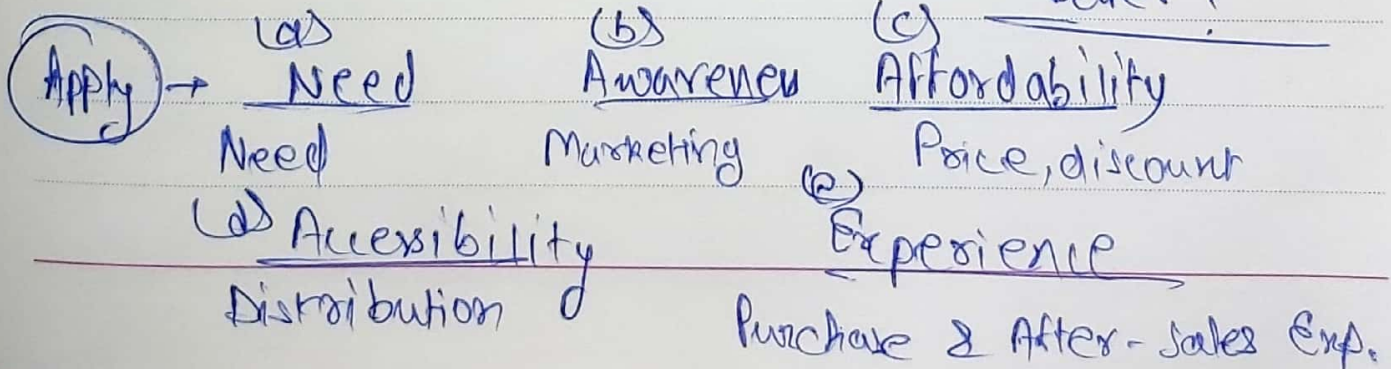 (a) (b) (c)
Apply → Need Awareness Affordability
Need Marketing Price, discount
(d) Accessibility (e) Experience
Distribution Purchase & After-Sales Exp.